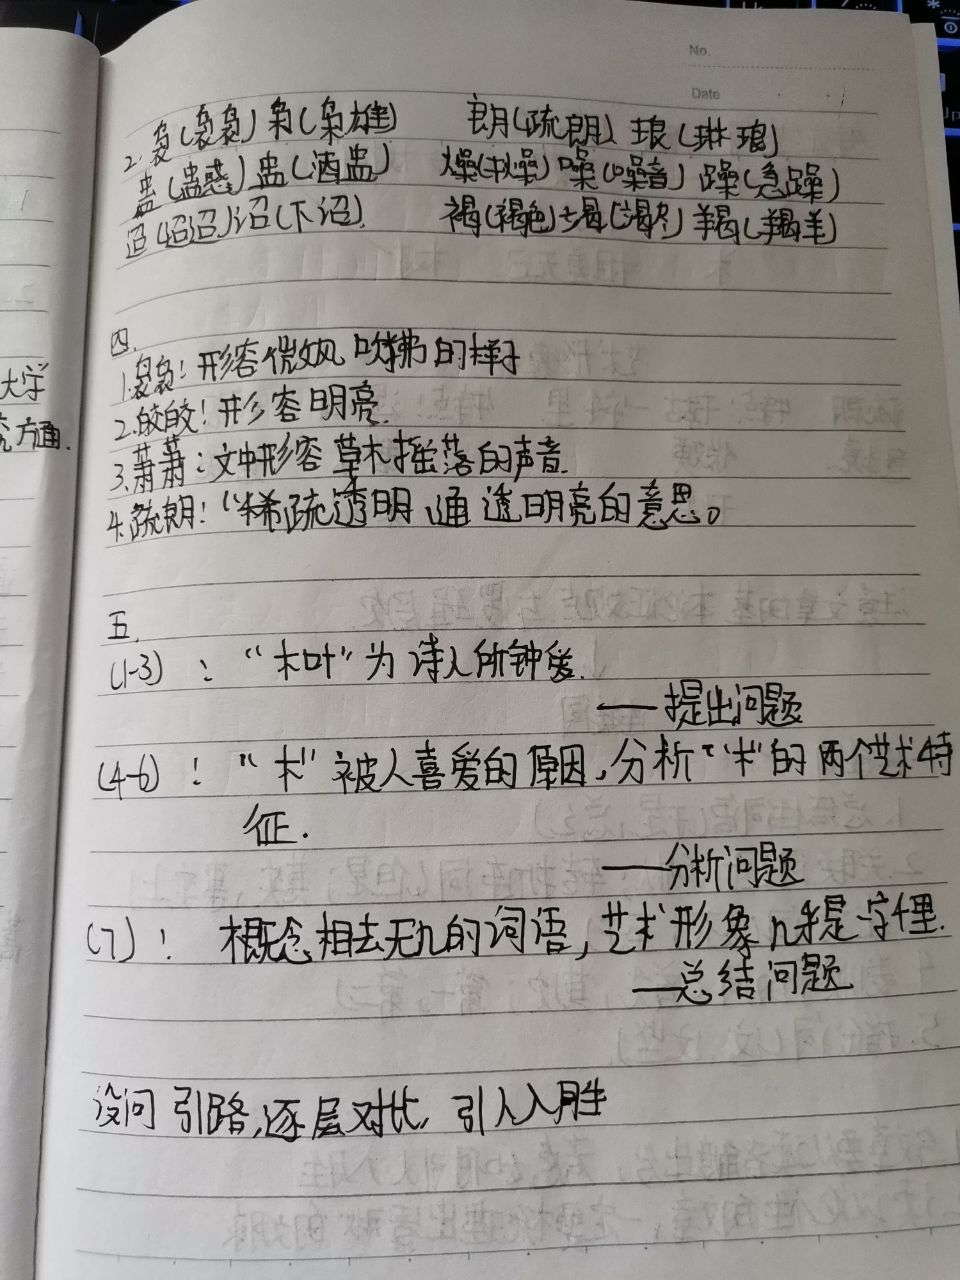 No.
Date
2. 袅(袅袅) 枭(枭雄) 朗(疏朗) 琅(琳琅)
蛊(蛊惑) 盅(酒盅) 燥(枯燥) 噪(噪音) 躁(急躁)
迢(迢迢) 诏(下诏). 褐(褐色) 竭(竭尽) 羯(羯羊)
四.
1.袅袅: 形容微风吹拂的样子
2.皎皎: 形容明亮.
3.萧萧: 文中形容草木摇落的声音.
4.疏朗: 稀疏透明、通透明亮的意思。
五.
(1-3): “木叶”为诗人所钟爱.
——提出问题
(4-6): “木”被人喜爱的原因,分析“木”的两个艺术特
征.
——分析问题
(7): 概念相去无几的词语,艺术形象
——总结问题
设问引路,逐层对比,引人入胜
大学
方面.